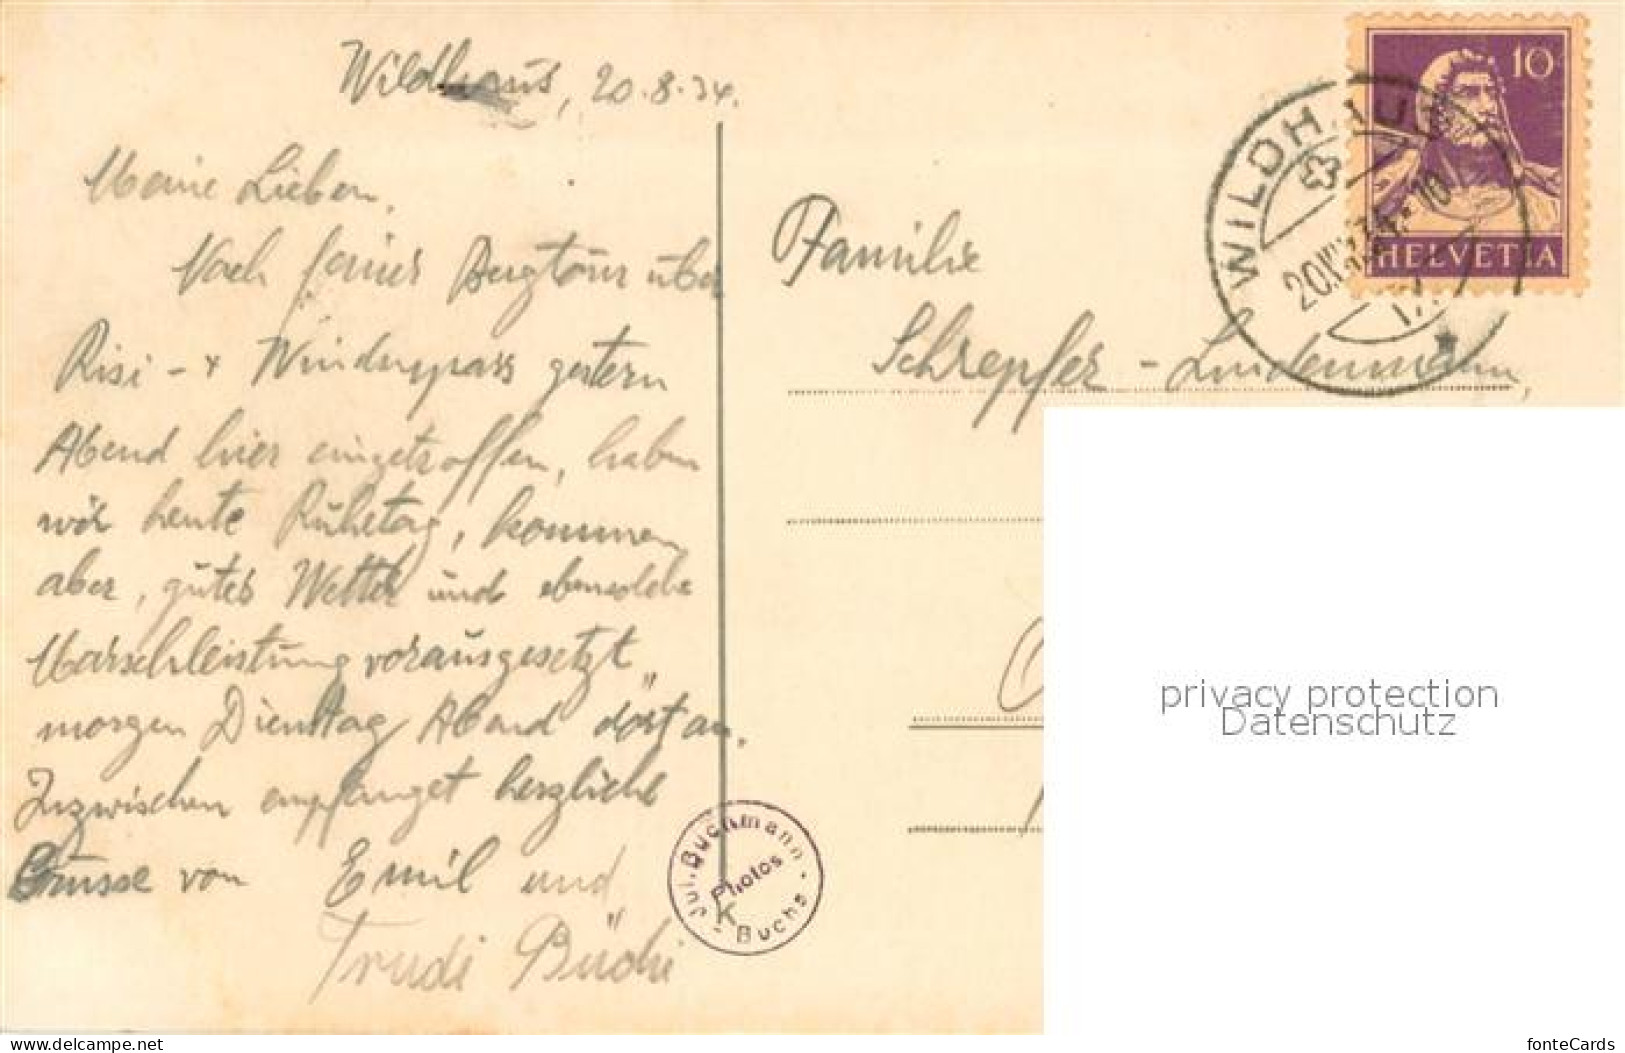 Wildhaus, 20.8.34.
Meine Lieben,
Nach feiner Bergtour über
Risi- + Windenpass gestern
Abend hier eingetroffen, haben
wir heute Ruhetag, kommen
aber, gutes Wetter und ebensolche
Marschleistung vorausgesetzt,
morgen Dienstag Abend dort an.
Inzwischen empfanget herzliche
Grüsse von Emil und
Trudi Büchi
Familie
Schrepfer-Lindenmann,
10
HELVETIA
WILDHAUS
20.VIII.34.-10
Jul. Buchmann
Photos
K
- Buchs -
privacy protection
Datenschutz
www.delcampe.net
fonteCards